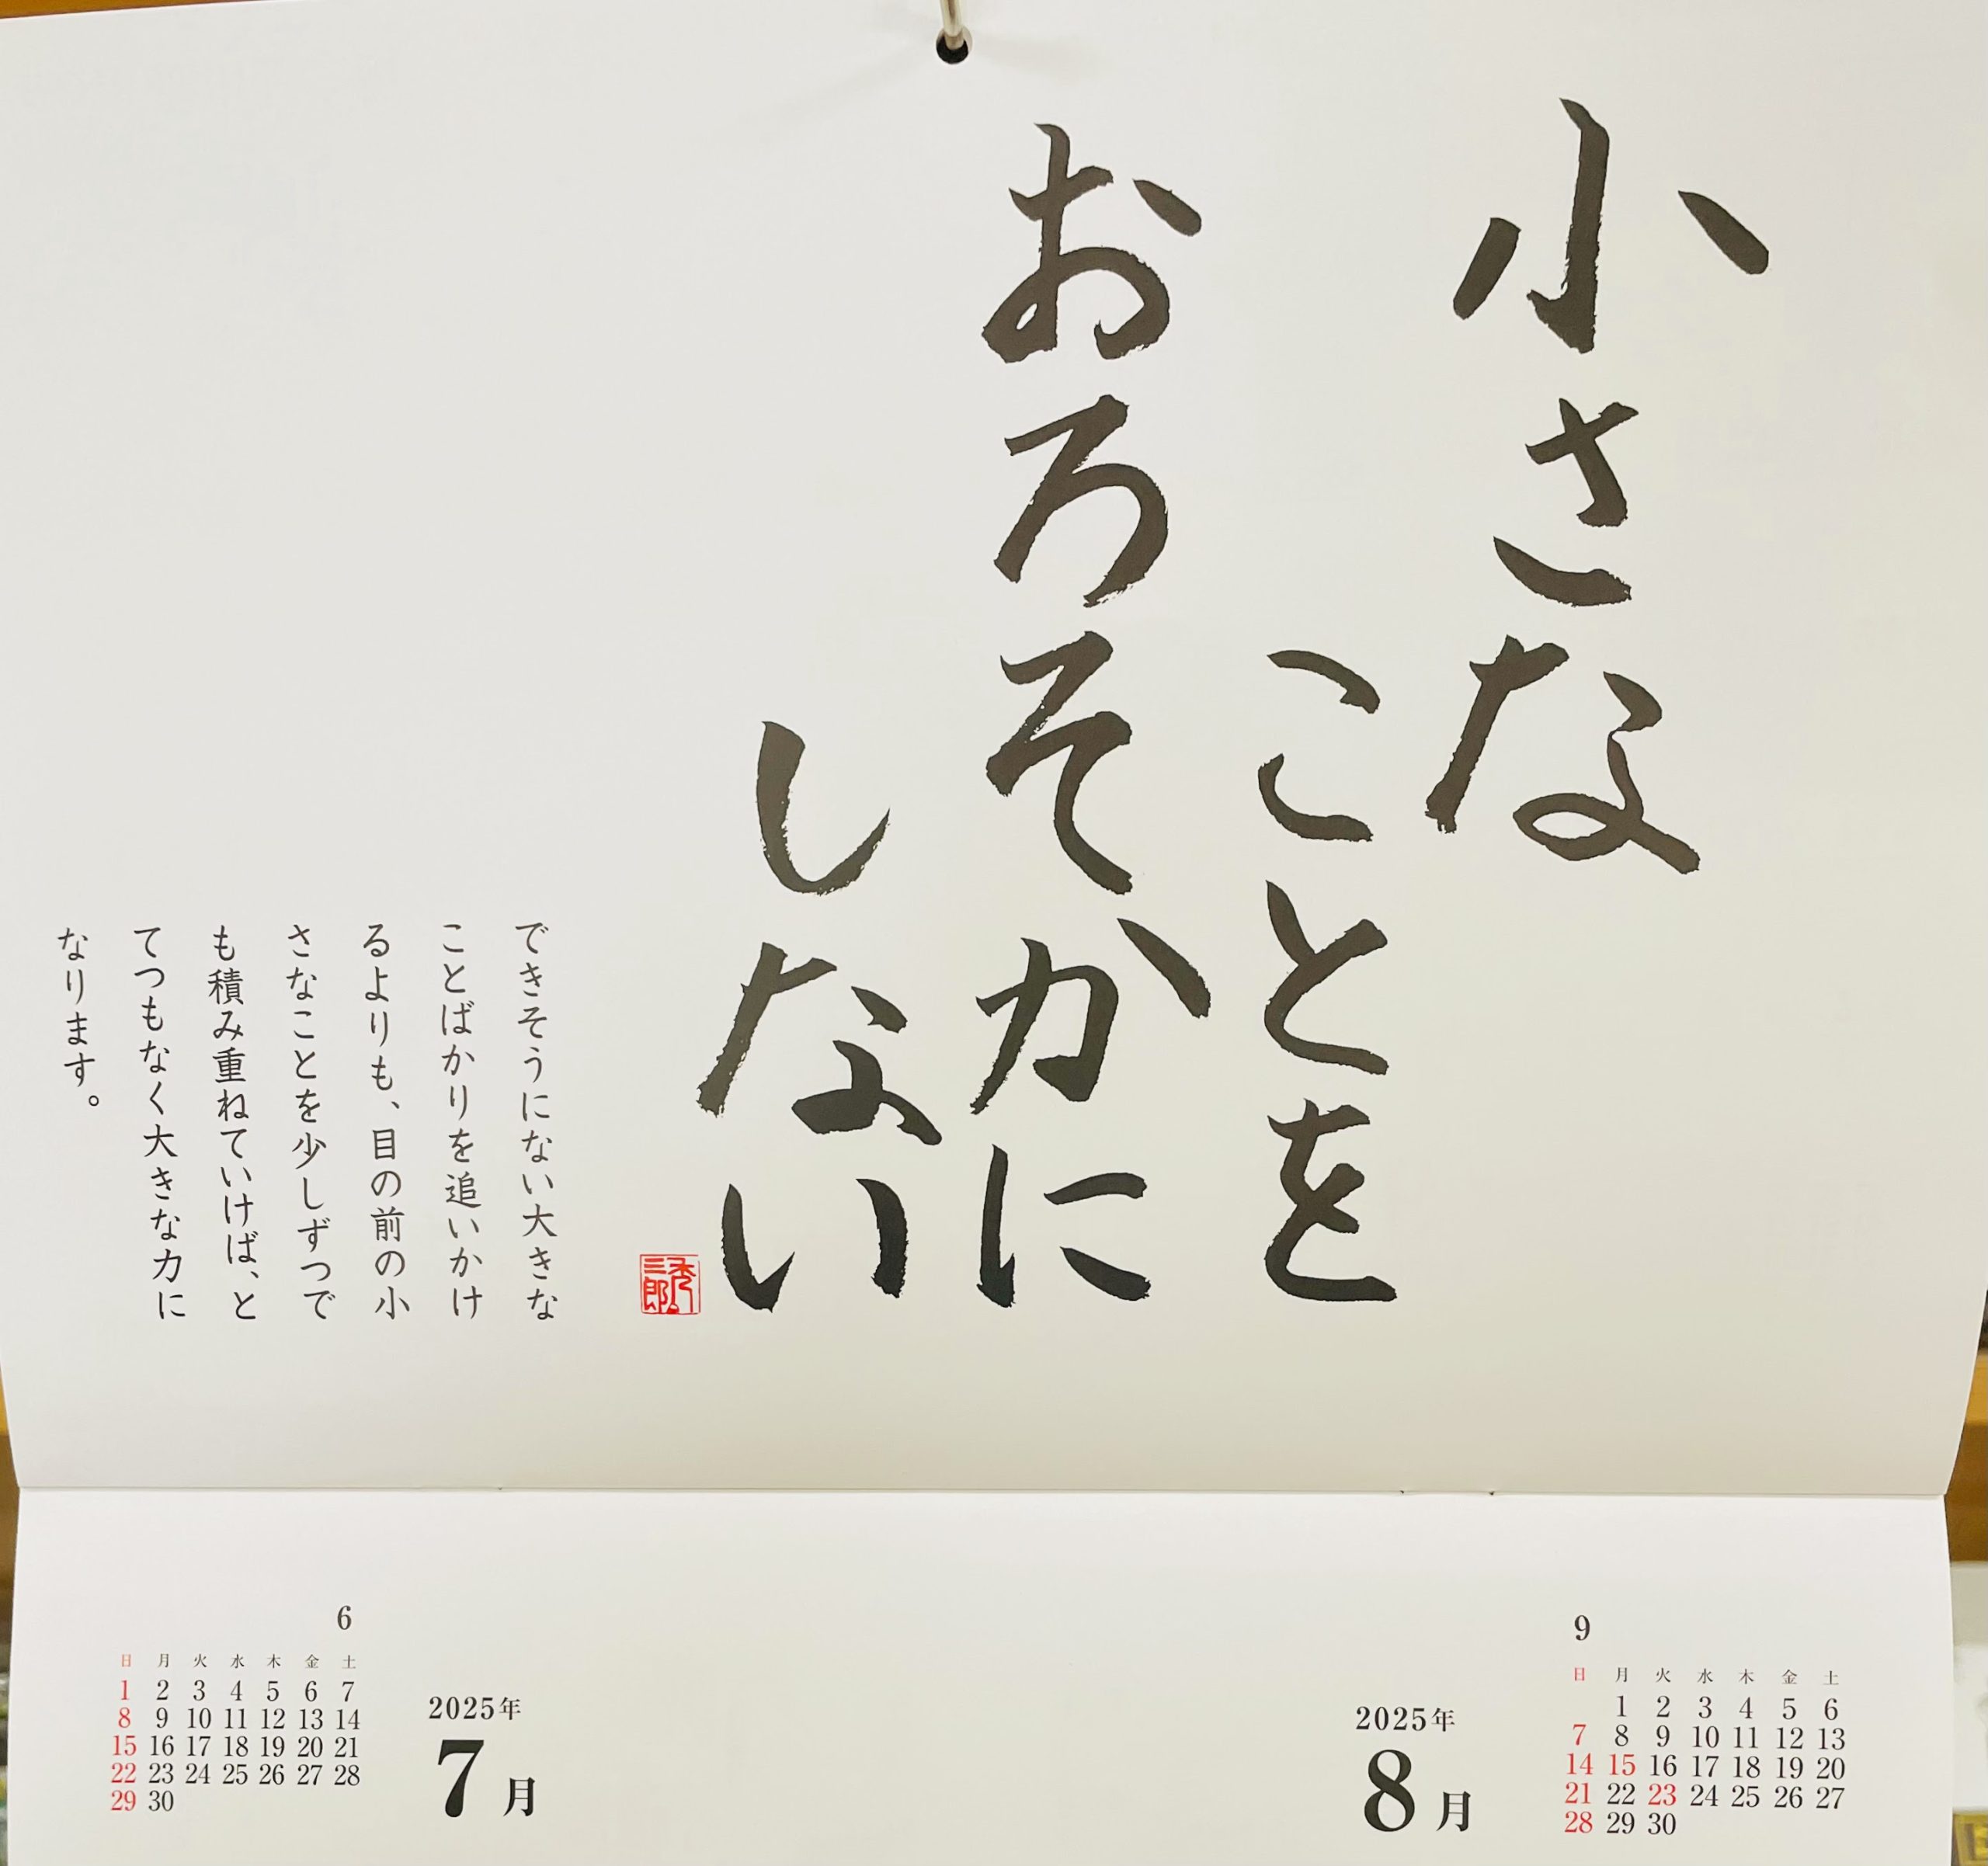 小さな
ことを
おろそかに
しない
秀三郎
できそうにない大きな
ことばかりを追いかけ
るよりも、目の前の小
さなことを少しずつで
も積み重ねていけば、と
てつもなく大きな力に
なります。
6
日 月 火 水 木 金 土
1 2 3 4 5 6 7
8 9 10 11 12 13 14
15 16 17 18 19 20 21
22 23 24 25 26 27 28
29 30
2025年
7月
2025年
8月
9
日 月 火 水 木 金 土
1 2 3 4 5 6
7 8 9 10 11 12 13
14 15 16 17 18 19 20
21 22 23 24 25 26 27
28 29 30